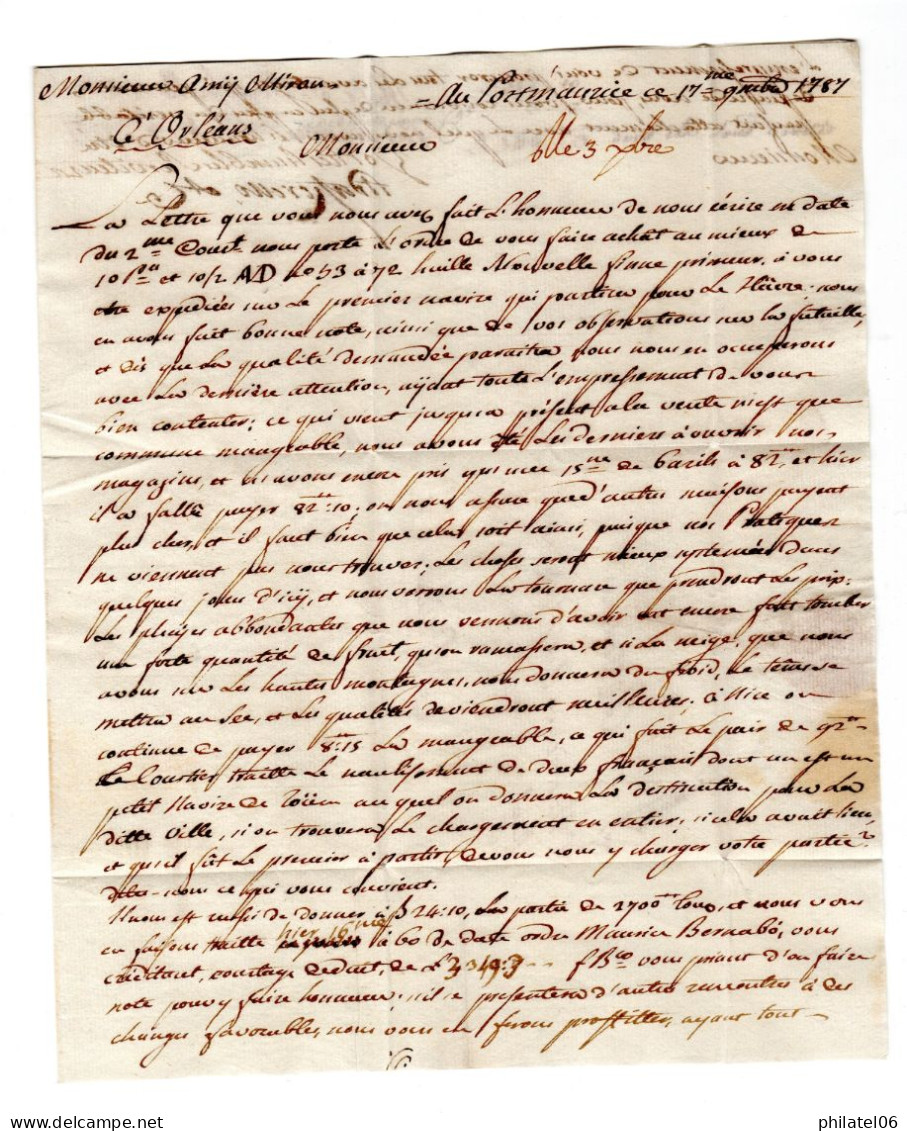 Monsieur Amij Miron
= Au Portmaurice ce 17.me 9mbre 1787
à Orléans
Monsieur
le 3 xbre
La Lettre que vous nous avez fait L'honneur de nous écrire en date
du 2.me Court nous porte L'ordre de vous faire achât au mieux de
10 P.es et 10/2 AD à 72 huille Nouvelle fine primeur, à vous
etre expediées sur Le premier navire qui partira pour Le Hâvre: nous
en avons fait bonne note, ainsi que de vos observations sur la futaille,
et dès que La qualité demandée paraitra nous nous en occuperons
avec La dernière attention, ayant toute L'empressement de vous
bien contenter; ce qui vient jusqu'à présent à la vente n'est que
commune mangeable, nous avons été Les derniers à ouvrir nos
magazins, et n'avons encore pris qu'une 15.ne de barils à 82, et hier
il a fallu payer 82:10; on nous assure que d'autres maisons payent
plus cher, et il faut bien que cela soit ainsi, puisque nos Pratiques
ne viennent pas nous trouver; Les choses seront mieux systemées dans
quelques jours d'icij, et nous verrons La tournure que prendront Les prix;
Les pluijes abbondantes que nous venons d'avoir ont encore fait tomber
une forte quantité de fruit, qu'on ramassera, et si La neige, que nous
avons sur Les hautes montagnes, nous donnera du froid, Le tems se
mettra au sec, et Les qualités deviendront meilleures. à Nice on
continue de payer 8:15 La mangeable, ce qui fait Le pair de 92
Le Courtier traitte Le naulissement de deux français dont un est un
petit Navire de au quel on donnera La destination pour La
ditte ville, si on trouvera Le chargement en entier; si cela avait lieu,
et qu'il fût Le premier à partir, devons nous y charger votre partie?
dites-nous ce qui vous convient.
Il nous est de donner à 24:10, La partie de 2700 et nous vous
en faisons traitte hier 16 me à 60 de date ordre Maurice Bernabó, vous
créditant, courtage deduit, de vous priant d'en faire
note pour y faire honneur: s'il se presentera d'autres rencontres à des
changes favorables, nous vous en ferons proffitter, ayant tout
philatel06.com